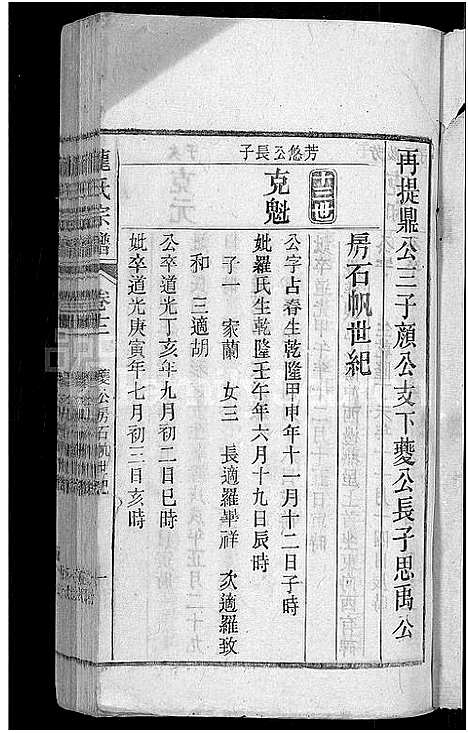 再提鼎公三子顔公支下夔公長子思禹公
房石帆世紀
十三世
芳悠公長子
克魁
公字占春生乾隆甲申年十一月十二日子時
妣羅氏生乾隆壬午年六月十九日辰時
子一 家蘭 女三 長適羅華祥 次適羅致
和 三適胡
公卒道光丁亥年九月初二日巳時
妣卒道光庚寅年七月初三日亥時
龍氏宗譜 卷十二 夔公房石帆世紀 一